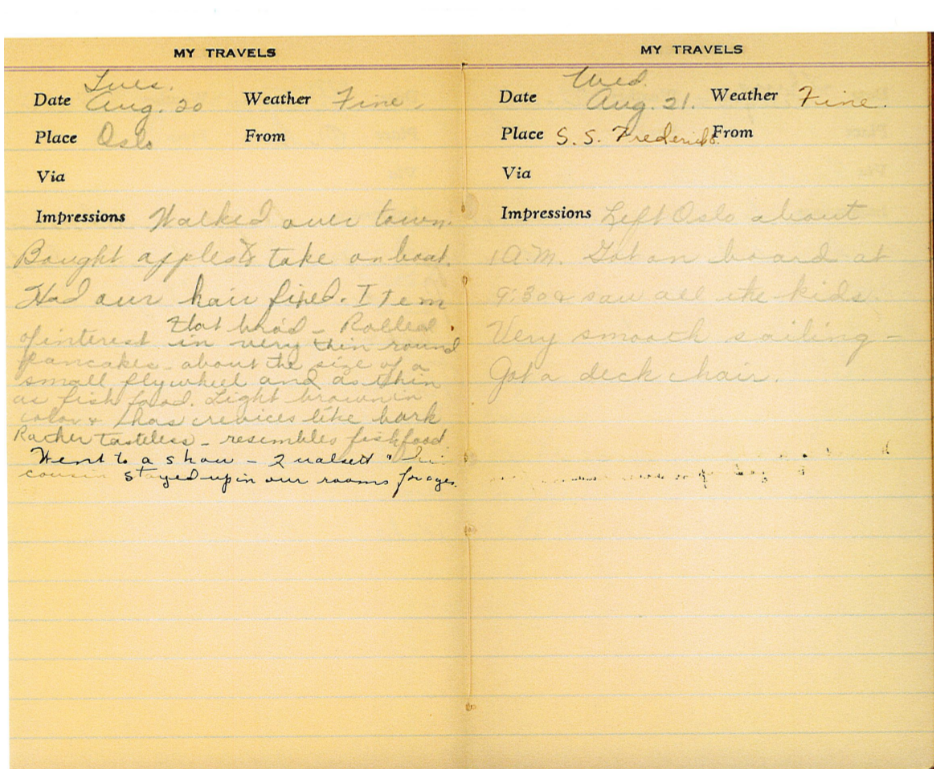 MY TRAVELS
Date Tues. Aug. 20 Weather Fine.
Place Oslo From
Via
Impressions Walked over town.
Bought apples to take on boat.
Had our hair fixed. Item
of interest flat brod - Rolled
in very thin round
pancakes - about the size of a
small flywheel and as thin
as fish food. Light brown in
color & has crevices like bark
Rather tasteless - resembles fishfood.
Went to a show -
cousin stayed up in our rooms for ages.
MY TRAVELS
Date Wed. Aug. 21. Weather Fine.
Place S. S. Frederik From
Via
Impressions Left Oslo about
1 A.M. Got on board at
9:30 & saw all the kids.
Very smooth sailing -
Got a deck chair.